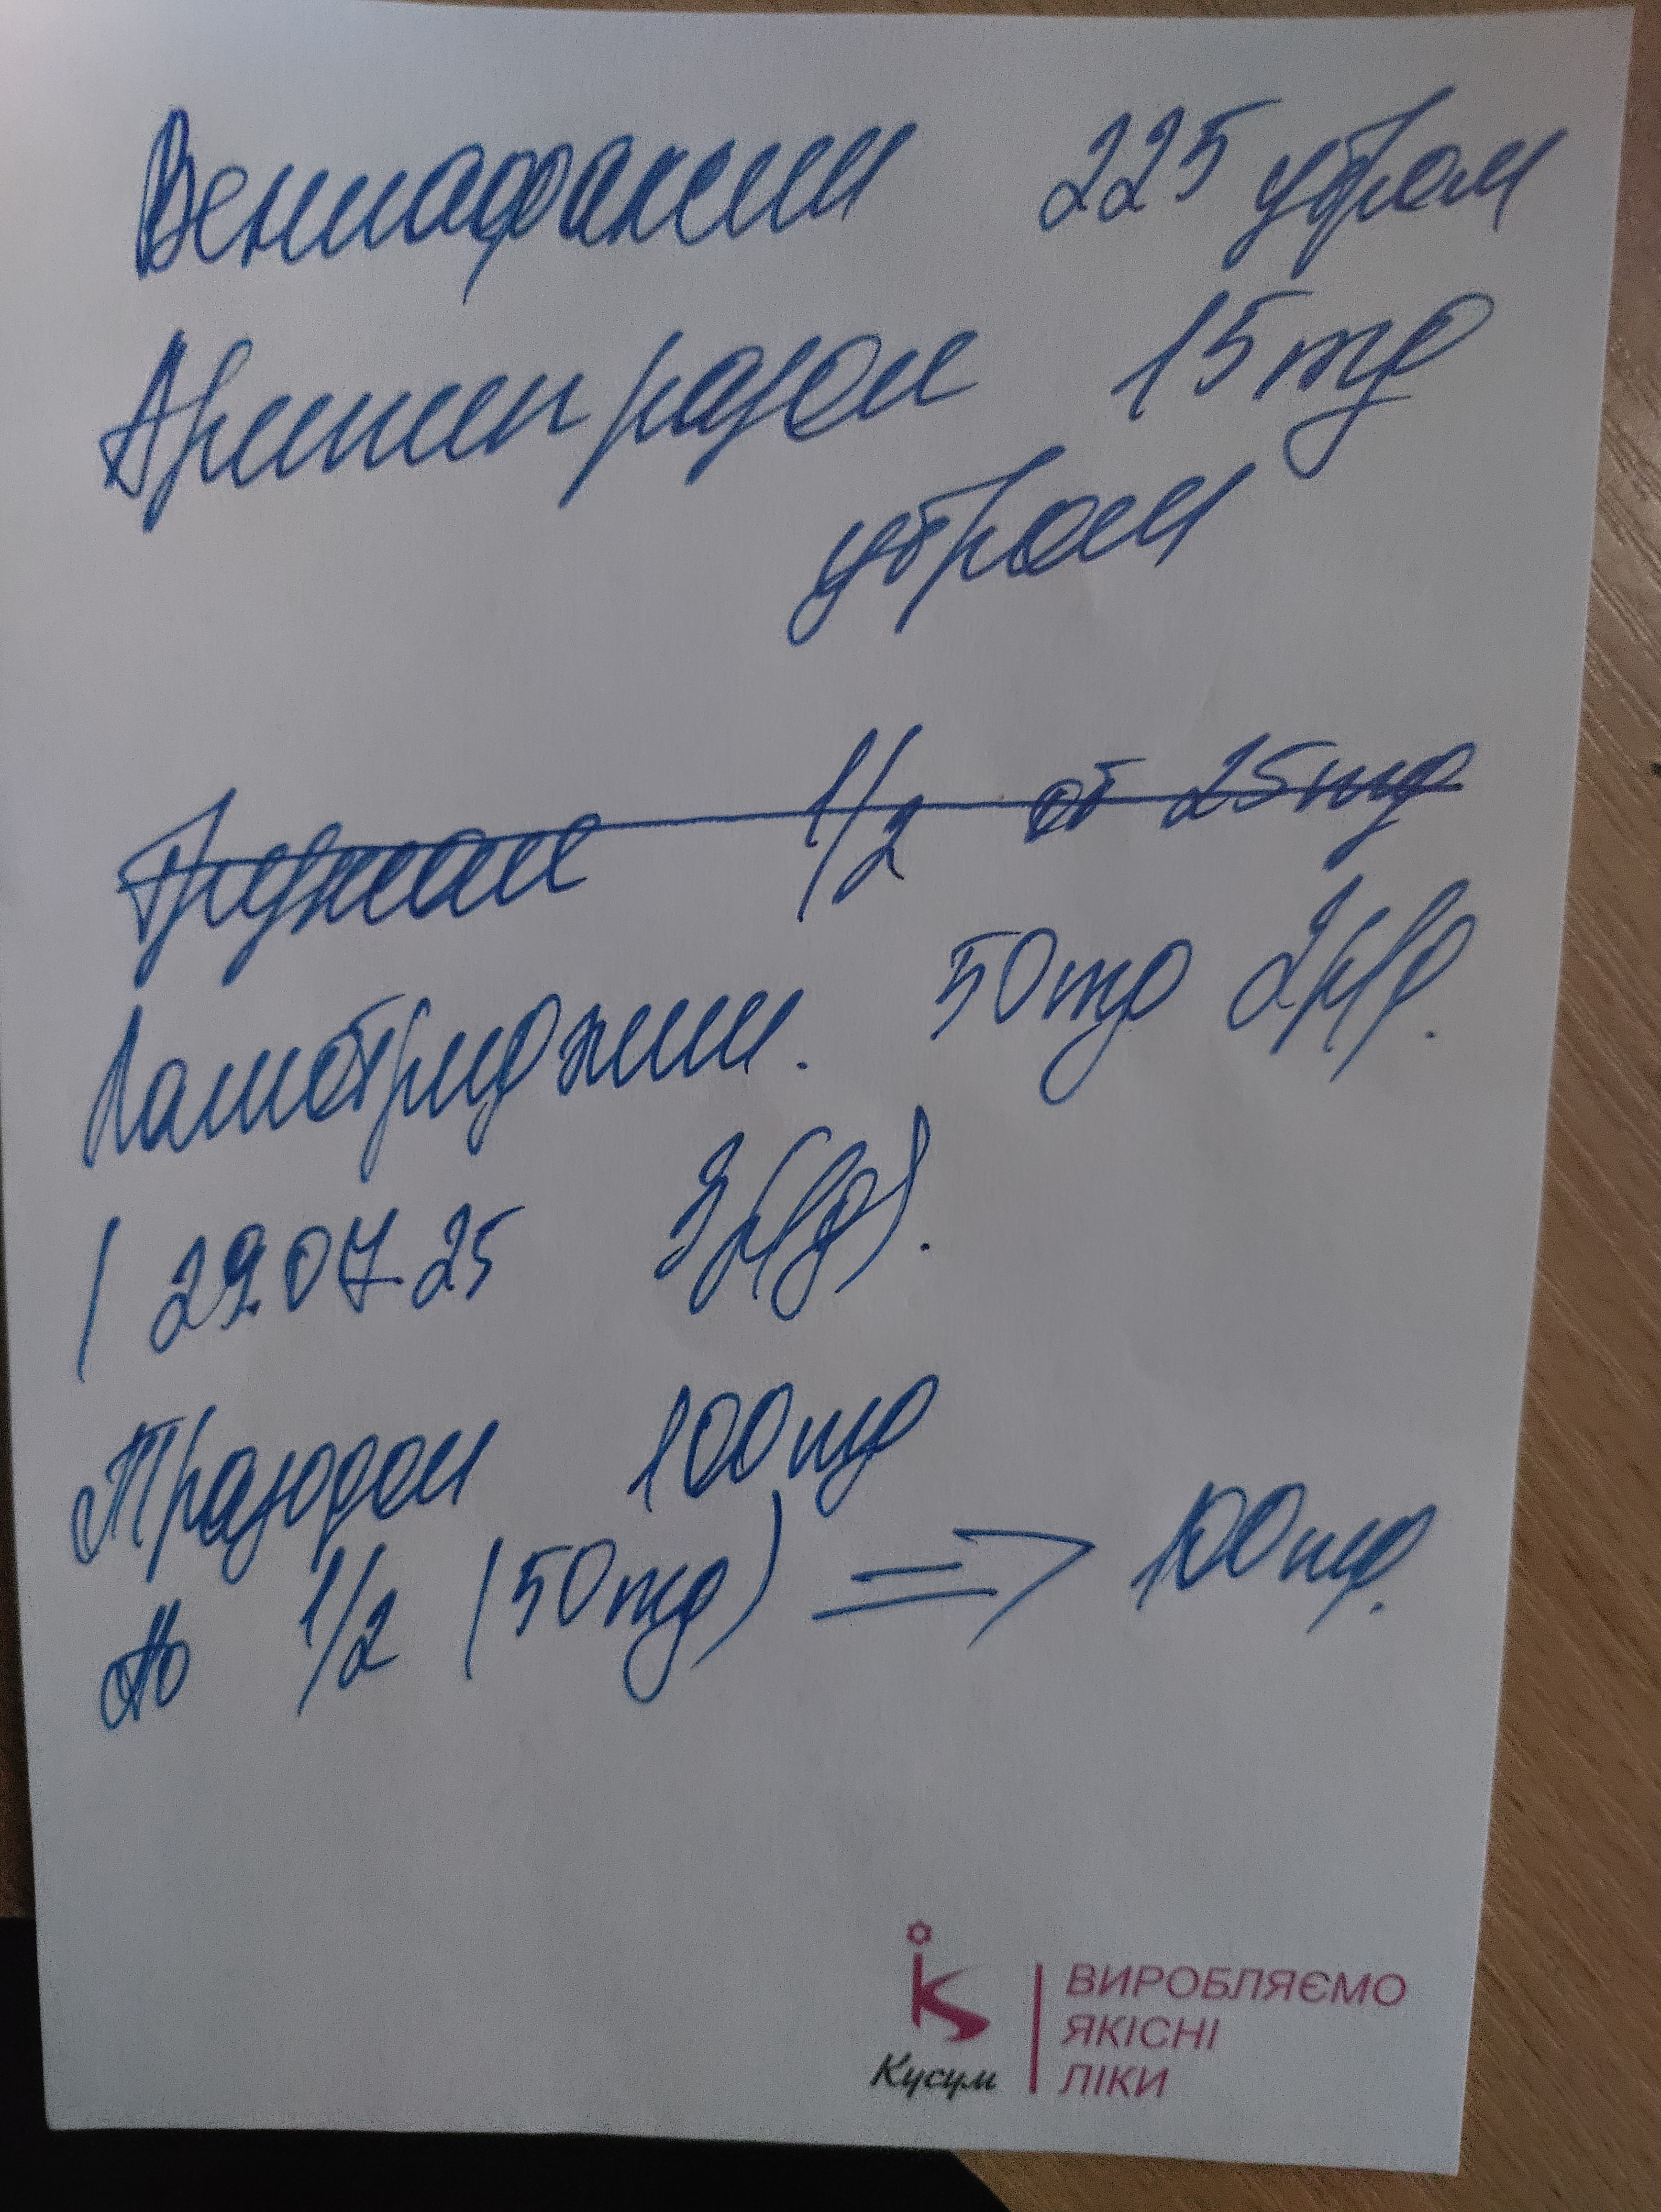 Венлафаксин 225 утром
Арипипразол 15mg
утром
1/2 от 25mg
Ламотриджин. 50mg 2р/д.
(29.07.25 3р/д).
Тразодон 100mg
по 1/2 (50mg) => 100mg.
Кусум
ВИРОБЛЯЄМО
ЯКІСНІ
ЛІКИ